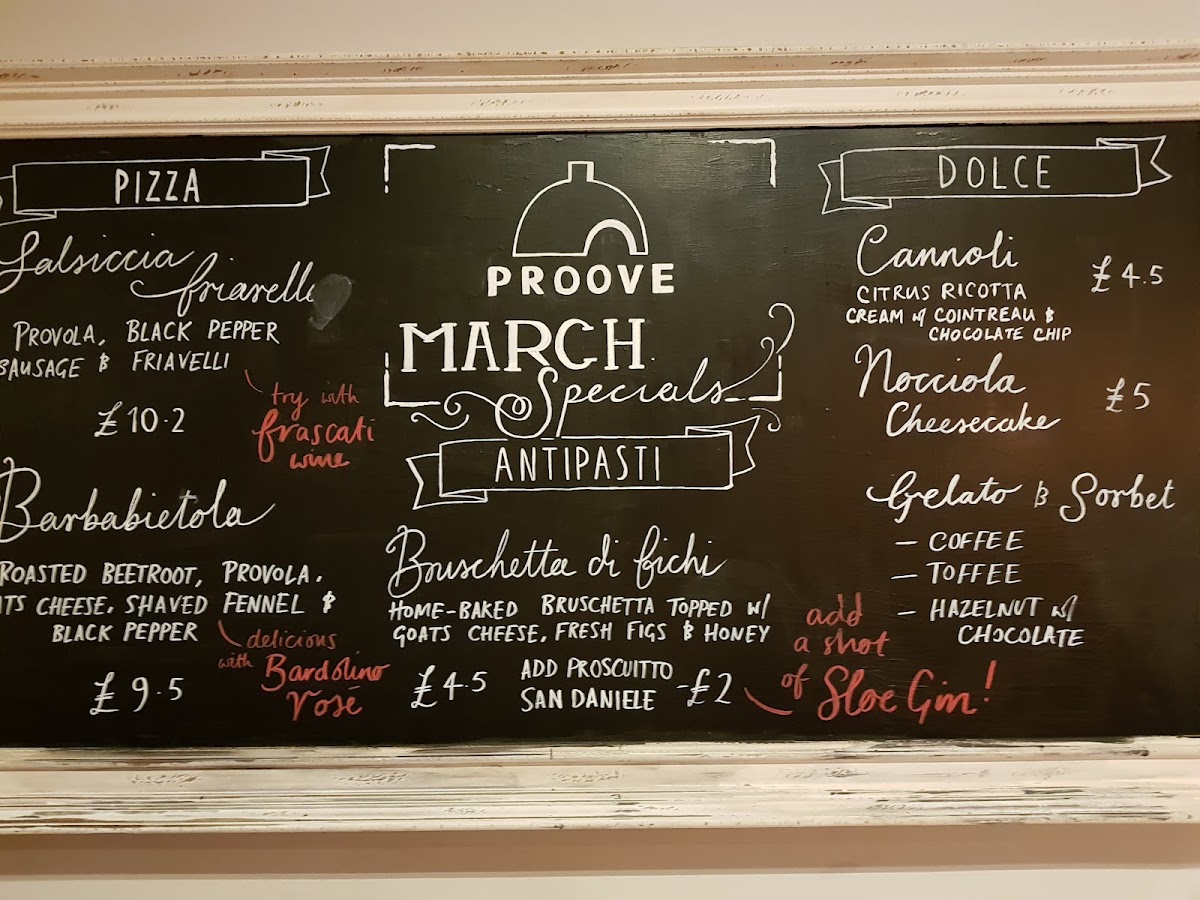 PIZZA
Salsiccia
friarelli
PROVOLA, BLACK PEPPER
SAUSAGE & FRIAVELLI
£10.2
try with
frascati
wine
Barbabietola
ROASTED BEETROOT, PROVOLA,
TS CHEESE, SHAVED FENNEL &
BLACK PEPPER
£9.5
delicious
with Bardolino
rosé
PROOVE
MARCH
Specials
ANTIPASTI
Bruschetta di fichi
HOME-BAKED BRUSCHETTA TOPPED W/
GOATS CHEESE, FRESH FIGS & HONEY
£4.5
ADD PROSCUITTO
SAN DANIELE
-£2
DOLCE
Cannoli
£4.5
CITRUS RICOTTA
CREAM w/ COINTREAU &
CHOCOLATE CHIP
Nocciola
Cheesecake
£5
Gelato & Sorbet
- COFFEE
- TOFFEE
- HAZELNUT w/
CHOCOLATE
add
a shot
of Sloe Gin!